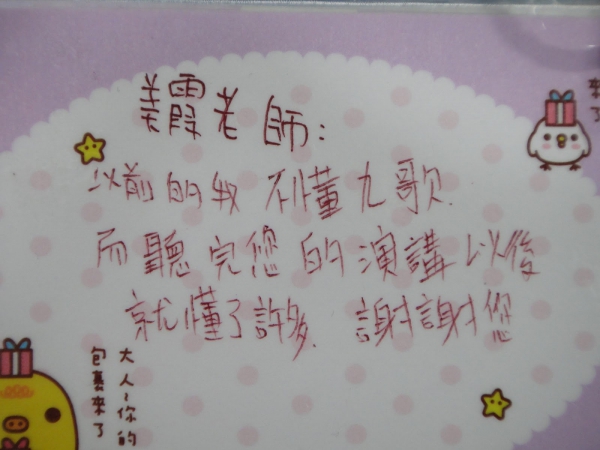 美霞老師:
以前的我 不懂九歌.
而聽完您的演講以後
就懂了許多. 謝謝您
大人~你的
包裹來了
來了